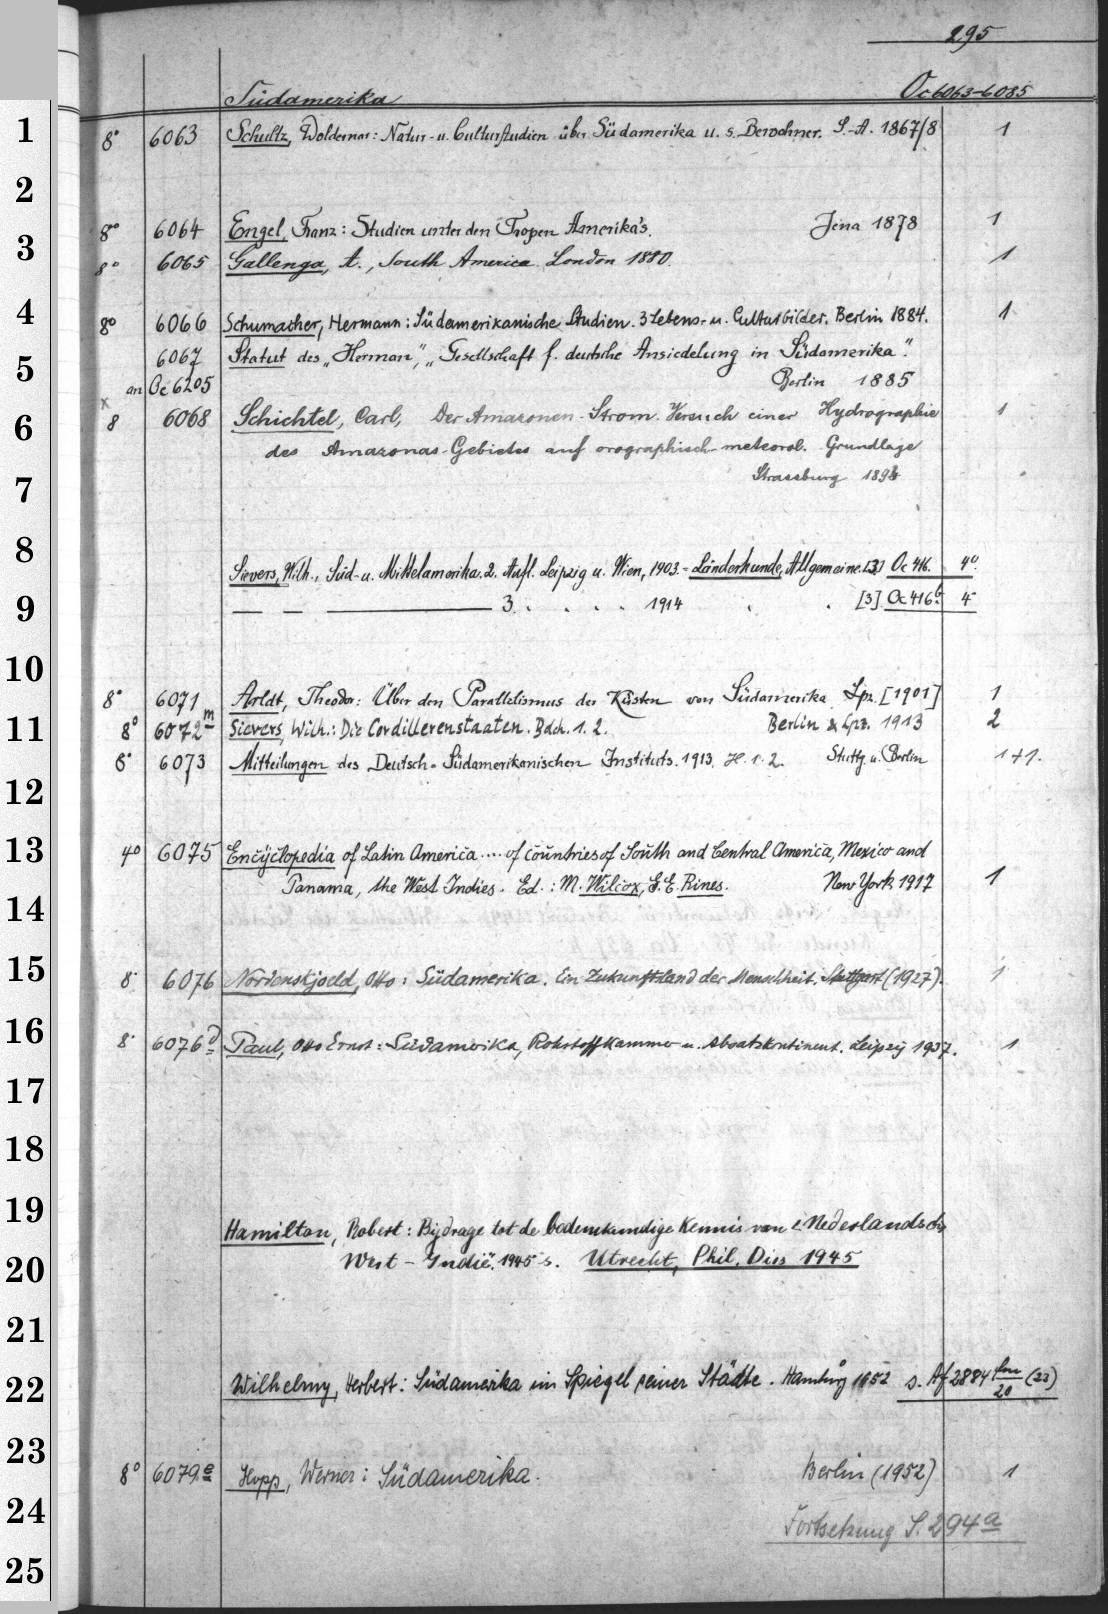 295
Südamerika Oc 6063-6085
1 8° 6063 Schultz, Woldemar: Natur- u. Culturstudien über Südamerika u. s. Bewohner. S.-A. 1867/8 1
2
8° 6064 Engel, Franz: Studien unter den Tropen Amerika's. Jena 1878 1
3 8° 6065 Gallenga, A., South America London 1880. 1
4 8° 6066 Schumacher, Hermann: Südamerikanische Studien. 3 Lebens- u. Culturbilder. Berlin 1884. 1
5 6067 Statut des „Herman", „Gesellschaft f. deutsche Ansiedelung in Südamerika".
an Oc 6205 Berlin 1885
x
6 8 6068 Schichtel, Carl, Der Amazonen-Strom. Versuch einer Hydrographie 1
des Amazonas-Gebietes auf orographisch-meteorol. Grundlage
7 Strassburg
8 Sievers, Wilh., Süd- u. Mittelamerika. 2. Aufl. Leipzig u. Wien, 1903 = Länderkunde, Allgemeine. [3] Oc 416. 4°
9 — — — 3. . . . . 1914 . . [3] Oc 416b. 4°
10
8° 6071 Arldt, Theodor: Über den Parallelismus der Küsten von Südamerika Lpz. [1901] 1
11 8° 6072m Sievers, Wilh.: Die Cordillerenstaaten. Bdch. 1. 2. Berlin & Lpz. 1913 2
8° 6073 Mitteilungen des Deutsch-Südamerikanischen Instituts. 1913. H. 1. 2. Stuttg. u. Berlin 1+1.
12
13 4° 6075 Encyclopedia of Latin America .... of countries of South and Central America, Mexico and
Panama, the West Indies. Ed.: M. Wilcox, G. E. Rines. New York 1917 1
14
15 8° 6076 Nordenskjoeld, Otto: Südamerika. Ein Zukunftsland der Menschheit. Stuttgart (1927). 1
16 8° 6076 Paul, Otto Ernst: Südamerika, Rohstoffkammer u. Absatzkontinent. Leipzig 1937. 1
17
18
19 Hamilton, Robert: Bijdrage tot de bodemkundige Kennis van Nederlandsch
20 West-Indië. 1945 s. Utrecht, Phil. Diss 1945
21
22 Wilhelmy, Herbert: Südamerika im Spiegel seiner Städte. Hamburg 1952 s. Af 2884 20 (23)
23 8° 6079a Hopp, Werner: Südamerika. Berlin (1952) 1
24 Fortsetzung S. 294a
25